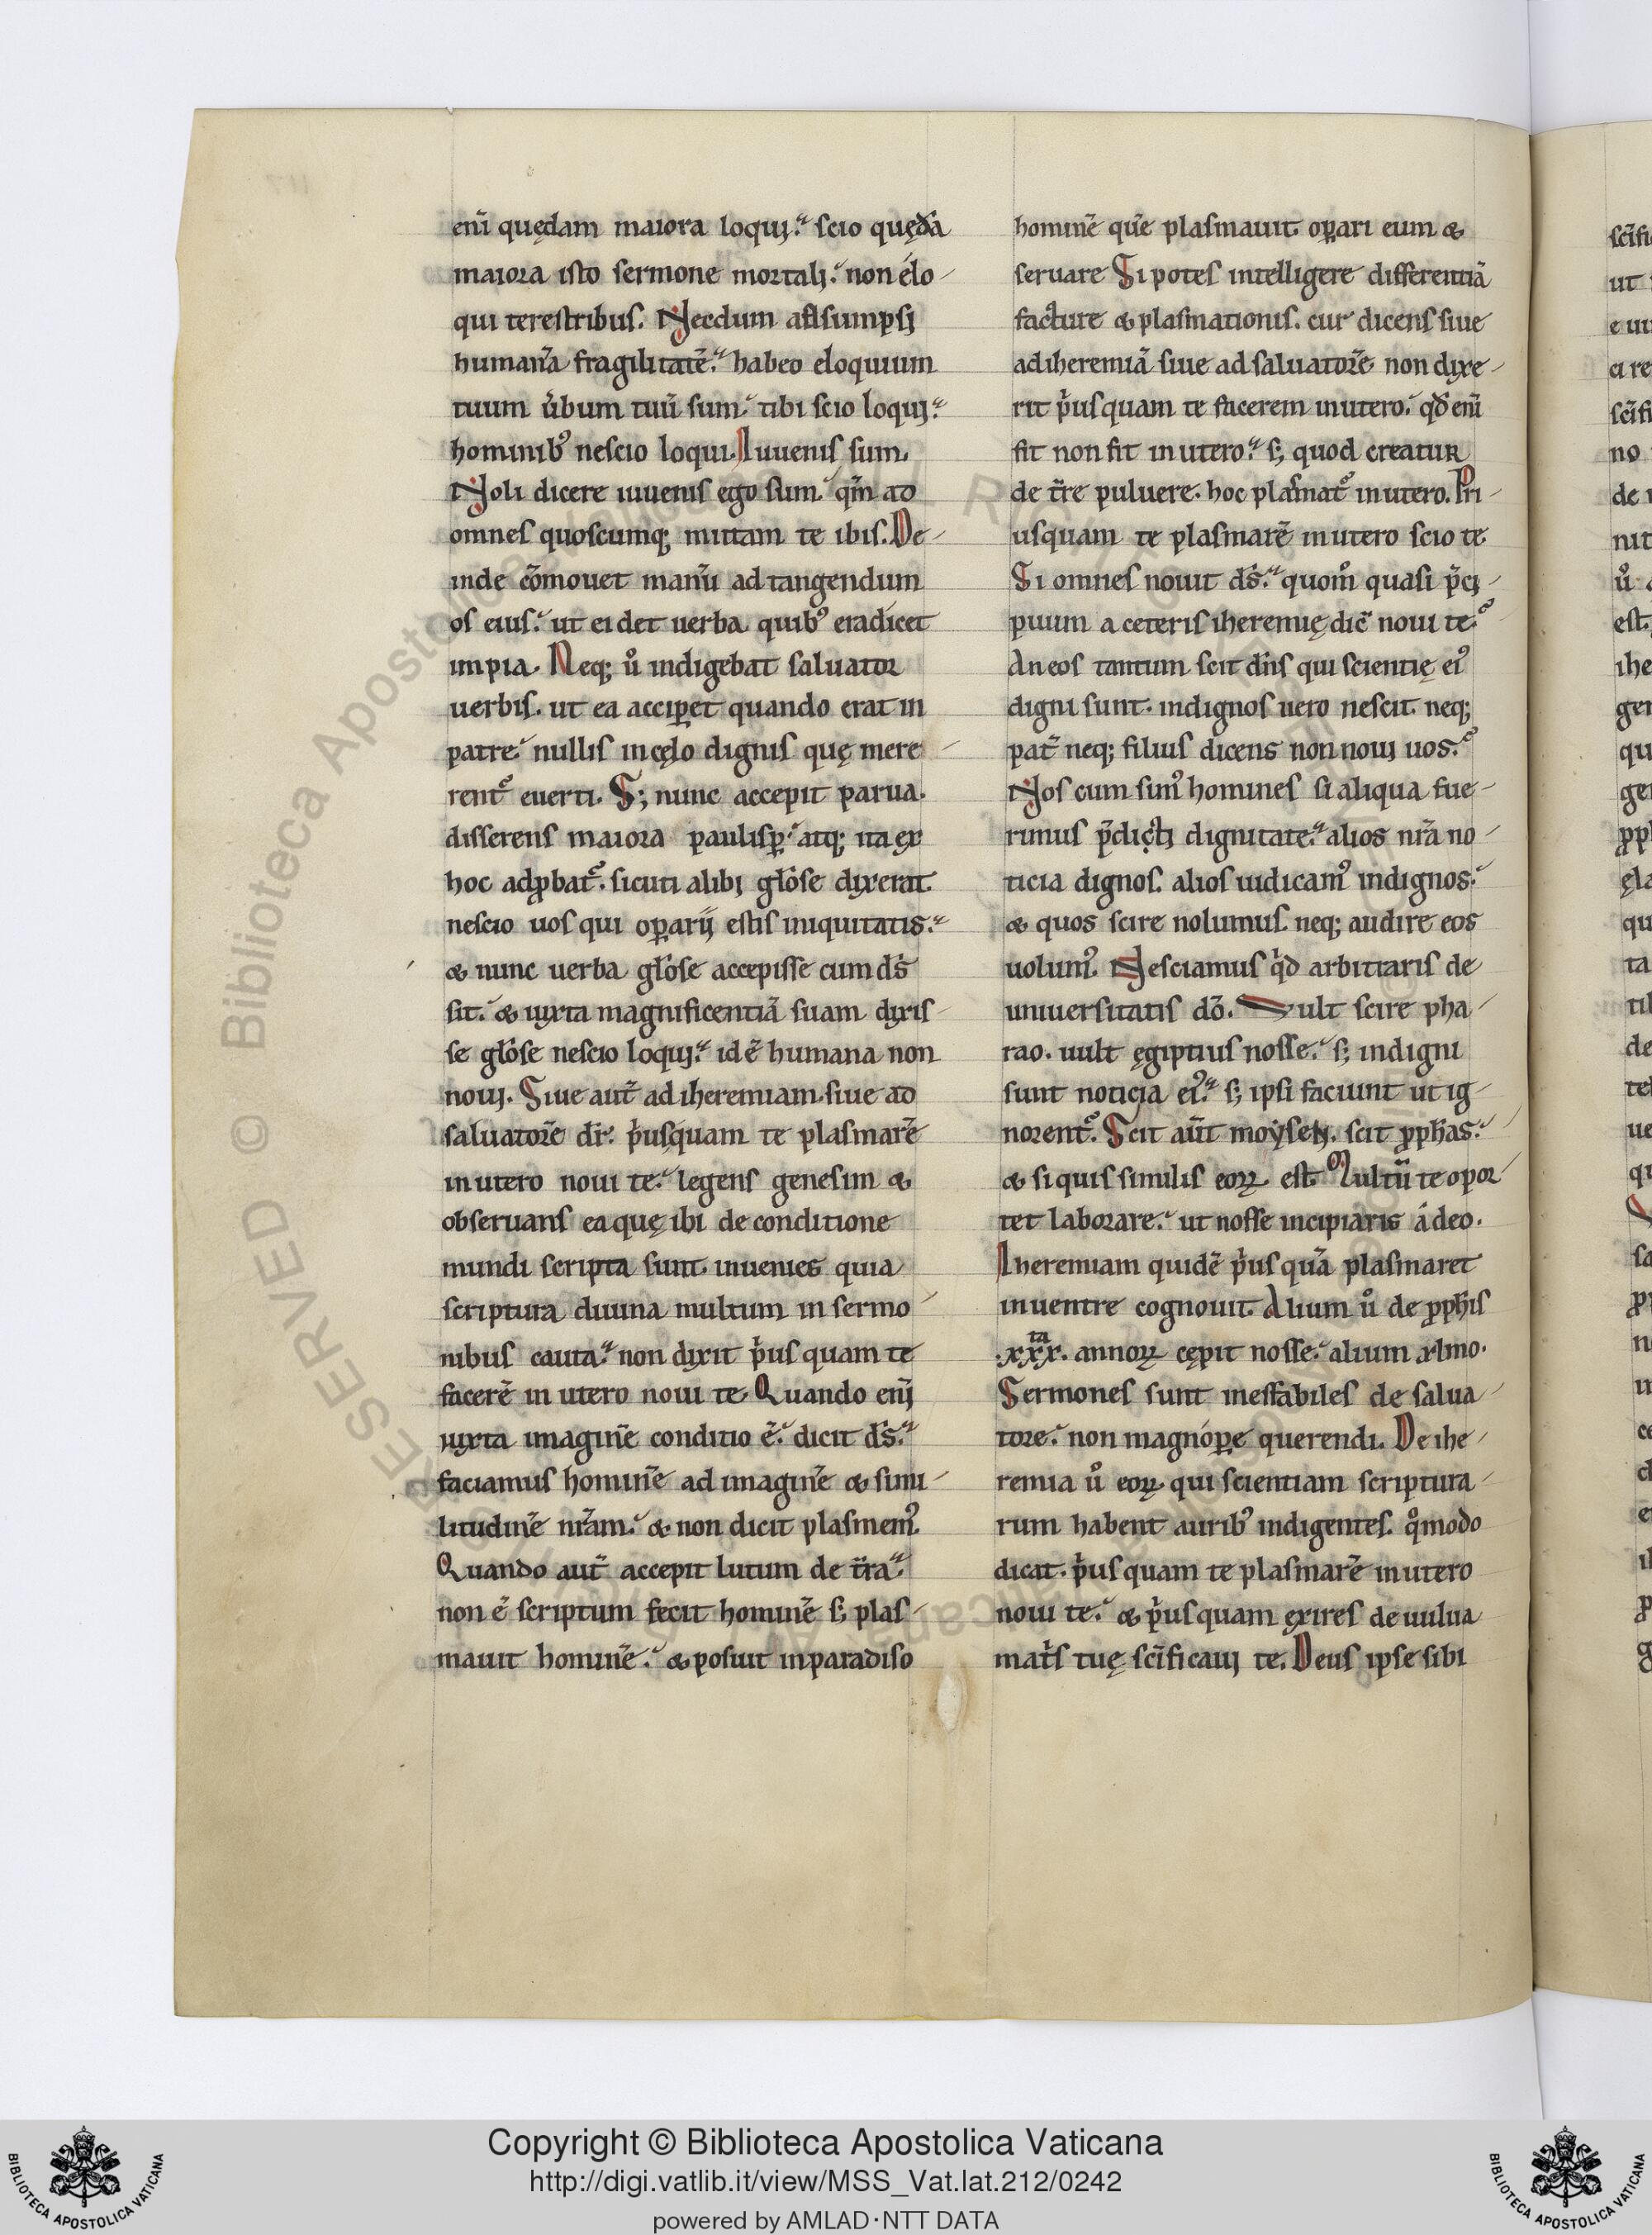 enī quędam maiora loqui. scio quędā
maiora isto sermone mortali. non élo
qui terestribus. Necdum assumpsi
humanā fragilitatē. habeo eloquium
tuum ủbum tuū sum. tibi scio loqui.
hominibꝰ nescio loqui. Iuuenis sum.
Noli dicere iuuenis ego sum. qm̄ ad
omnes quoscumq; mittam te ibis. De
inde cōmouet manū ad tangendum
os eius. ut ei det uerba quibꝰ eradicet
impia. Neq; ů indigebat saluator
uerbis. ut ea acciꝑet quando erat in
patre. nullis in cęlo dignis quę mere
rent᷑ euerti. S; nunc accepit parua.
disserens maiora paulisꝑ. atq; ita ex
hoc adꝓbat᷑. sicuti alibi glo̓se dixerat.
nescio uos qui oꝑarij estis iniquitatis.
& nunc uerba glo̓se accepisse cum ds̄
sit. & iuxta magnificentiā suam dixis
se glo̓se nescio loqui. id ē humana non
noui. Siue aut̄ ad iheremiam siue ad
saluatorē dr̄. pͥusquam te plasmarē
in utero noui te. legens genesim &
obseruans ea quę ibi de conditione
mundi scripta sunt. inuenies quia
scriptura diuina multum in sermo
nibus cauta. non dixit pͥus quam te
facerē in utero noui te. Quando enī
iuxta imaginē conditio ē. dicit ds̄.
faciamus hominē ad imaginē & simi
litudinē nrām. & non dicit plasmemꝰ.
Quando aut̄ accepit lutum de t̄ra.
non ē scriptum fecit hominē s; plas
mauit hominē. & posuit in paradiso
hominē quē plasmauit. oꝑari eum &
seruare Si potes intelligere differentiā
facture & plasmationis. cur dicens siue
ad iheremiā siue ad saluatorē non dixe
rit pͥusquam te facerem in utero. qd̄ enī
fit non fit in utero. s; quod creatur
de t̄re puluere. hoc plasmat᷑ in utero. Pri
usquam te plasmarē in utero scio te.
Si omnes nouit ds̄. quom̊ quasi p̄ci
puum a ceteris iheremię dic̄ noui te.
An eos tantum scit dn̄s qui scientię eiꝰ
digni sunt. indignos uero nescit. neq;
pat̄ neq; filius dicens non noui uos.
Nos cum simꝰ homines si aliqua fue
rimus p̄dicti dignitate. alios nrā no
ticia dignos. alios iudicamꝰ indignos.
& quos scire nolumus. neq; audire eos
uolumꝰ. Nesciamus qͥd arbitiaris de
uniuersitatis dō. Uult scire pha
rao. uult ęgiptius nosse. s; indigni
sunt noticia eiꝰ. s; ipsi faciunt ut ig
norent᷑. Scit aūt moysen. scit ꝓph̄as.
& si quis similis eoꝝ est. Multū te opor
tet laborare. ut nosse incipiaris á deo.
Iheremiam quidē pͥus quā plasmaret
in uentre cognouit. Alium ů de ꝓph̄is
.xxx.ta annoꝝ cępit nosse. alium a .lmo.
Sermones sunt ineffabiles de salua
tore. non magnóꝑe querendi. De ihe
remia ů eoꝝ qui scientiam scriptura
rum habent auribꝰ indigentes. qͦmodo
dicat. pͥus quam te plasmarē in utero
noui te. & pͥus quam exires de uulua
mat͛s tuę scīficaui te. Deus ipse sibi
Copyright © Biblioteca Apostolica Vaticana
http://digi.vatlib.it/view/MSS_Vat.lat.212/0242
powered by AMLAD·NTT DATA
BIBLIOTECA APOSTOLICA VATICANA
BIBLIOTECA APOSTOLICA VATICANA